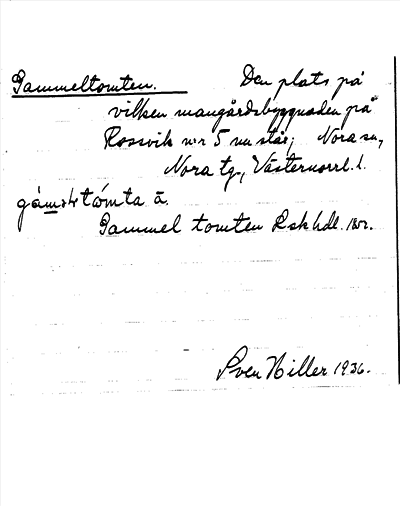 Gammeltomten. Den plats på
vilken mangårdsbyggnaden på
Rossvik n:r 5 nu står; Nora sn,
Nora tg., Västernorrl. l.
tómta
Gammel tomten Rskhdl.
Sven Hiller 1936.